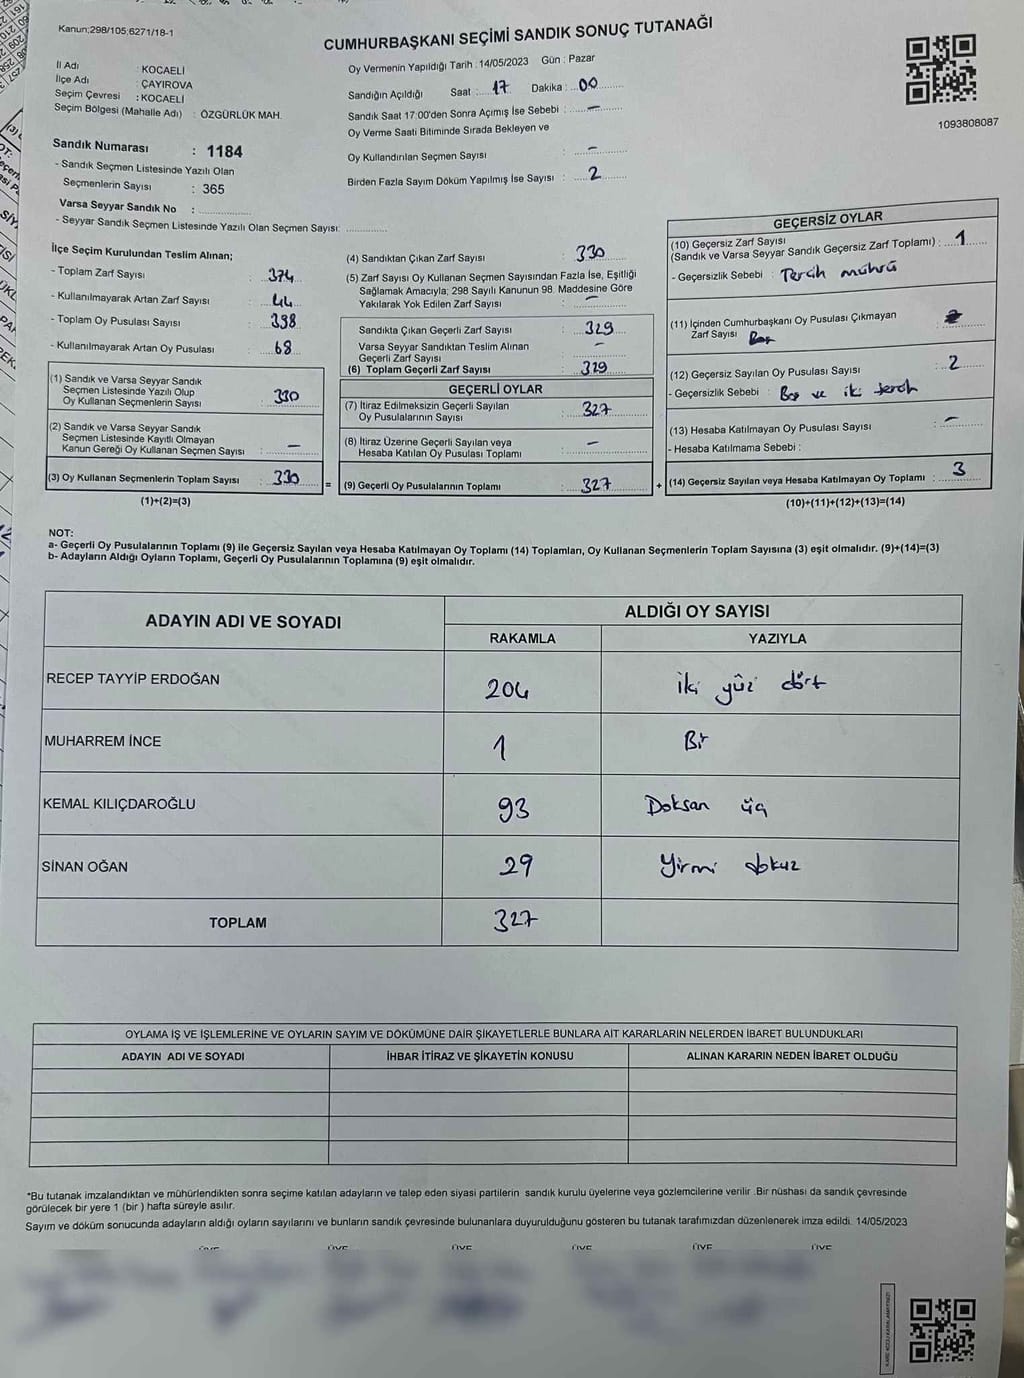 Kanun;298/105,6271/18-1
CUMHURBAŞKANI SEÇİMİ SANDIK SONUÇ TUTANAĞI
İl Adı : KOCAELİ
İlçe Adı : ÇAYIROVA
Seçim Çevresi : KOCAELİ
Seçim Bölgesi (Mahalle Adı) : ÖZGÜRLÜK MAH.
Sandık Numarası : 1184
- Sandık Seçmen Listesinde Yazılı Olan
Seçmenlerin Sayısı : 365
Varsa Seyyar Sandık No :
- Seyyar Sandık Seçmen Listesinde Yazılı Olan Seçmen Sayısı:
Oy Vermenin Yapıldığı Tarih : 14/05/2023 Gün : Pazar
Sandığın Açıldığı Saat : 17 Dakika : 00
Sandık Saat 17:00'den Sonra Açımış İse Sebebi : –
Oy Verme Saati Bitiminde Sırada Bekleyen ve
Oy Kullandırılan Seçmen Sayısı : –
Birden Fazla Sayım Döküm Yapılmış İse Sayısı : 2
1093808087
İlçe Seçim Kurulundan Teslim Alınan;
- Toplam Zarf Sayısı : 374
- Kullanılmayarak Artan Zarf Sayısı : 44
- Toplam Oy Pusulası Sayısı : 398
- Kullanılmayarak Artan Oy Pusulası : 68
(1) Sandık ve Varsa Seyyar Sandık
Seçmen Listesinde Yazılı Olup
Oy Kullanan Seçmenlerin Sayısı : 330
(2) Sandık ve Varsa Seyyar Sandık
Seçmen Listesinde Kayıtlı Olmayan
Kanun Gereği Oy Kullanan Seçmen Sayısı : –
(3) Oy Kullanan Seçmenlerin Toplam Sayısı : 330
(1)+(2)=(3)
=
(4) Sandıktan Çıkan Zarf Sayısı : 330
(5) Zarf Sayısı Oy Kullanan Seçmen Sayısından Fazla İse, Eşitliği
Sağlamak Amacıyla; 298 Sayılı Kanunun 98. Maddesine Göre
Yakılarak Yok Edilen Zarf Sayısı : –
Sandıkta Çıkan Geçerli Zarf Sayısı : 329
Varsa Seyyar Sandıktan Teslim Alınan
Geçerli Zarf Sayısı : –
(6) Toplam Geçerli Zarf Sayısı : 329
GEÇERLİ OYLAR
(7) İtiraz Edilmeksizin Geçerli Sayılan
Oy Pusulalarının Sayısı : 327
(8) İtiraz Üzerine Geçerli Sayılan veya
Hesaba Katılan Oy Pusulası Toplamı : –
(9) Geçerli Oy Pusulalarının Toplamı : 327
+
GEÇERSİZ OYLAR
(10) Geçersiz Zarf Sayısı
(Sandık ve Varsa Seyyar Sandık Geçersiz Zarf Toplamı) : 1
- Geçersizlik Sebebi : Tercih mührü
(11) İçinden Cumhurbaşkanı Oy Pusulası Çıkmayan
Zarf Sayısı Boş :
(12) Geçersiz Sayılan Oy Pusulası Sayısı : 2
- Geçersizlik Sebebi : Boş ve iki tercih
(13) Hesaba Katılmayan Oy Pusulası Sayısı : –
- Hesaba Katılmama Sebebi :
(14) Geçersiz Sayılan veya Hesaba Katılmayan Oy Toplamı : 3
(10)+(11)+(12)+(13)=(14)
NOT:
a- Geçerli Oy Pusulalarının Toplamı (9) ile Geçersiz Sayılan veya Hesaba Katılmayan Oy Toplamı (14) Toplamları, Oy Kullanan Seçmenlerin Toplam Sayısına (3) eşit olmalıdır. (9)+(14)=(3)
b- Adayların Aldığı Oyların Toplamı, Geçerli Oy Pusulalarının Toplamına (9) eşit olmalıdır.
ADAYIN ADI VE SOYADI
ALDIĞI OY SAYISI
RAKAMLA YAZIYLA
RECEP TAYYİP ERDOĞAN 204 iki yüz dört
MUHARREM İNCE 1 Bir
KEMAL KILIÇDAROĞLU 93 Doksan üç
SİNAN OĞAN 29 Yirmi dokuz
TOPLAM 327
OYLAMA İŞ VE İŞLEMLERİNE VE OYLARIN SAYIM VE DÖKÜMÜNE DAİR ŞİKAYETLERLE BUNLARA AİT KARARLARIN NELERDEN İBARET BULUNDUKLARI
ADAYIN ADI VE SOYADI İHBAR İTİRAZ VE ŞİKAYETİN KONUSU ALINAN KARARIN NEDEN İBARET OLDUĞU
*Bu tutanak imzalandıktan ve mühürlendikten sonra seçime katılan adayların ve talep eden siyasi partilerin sandık kurulu üyelerine veya gözlemcilerine verilir .Bir nüshası da sandık çevresinde
görülecek bir yere 1 (bir ) hafta süreyle asılır.
Sayım ve döküm sonucunda adayların aldığı oyların sayılarını ve bunların sandık çevresinde bulunanlara duyurulduğunu gösteren bu tutanak tarafımızdan düzenlenerek imza edildi. 14/05/2023
ÜYE ÜYE ÜYE ÜYE ÜYE ÜYE
KARE KODU KARALAMAYINIZ!